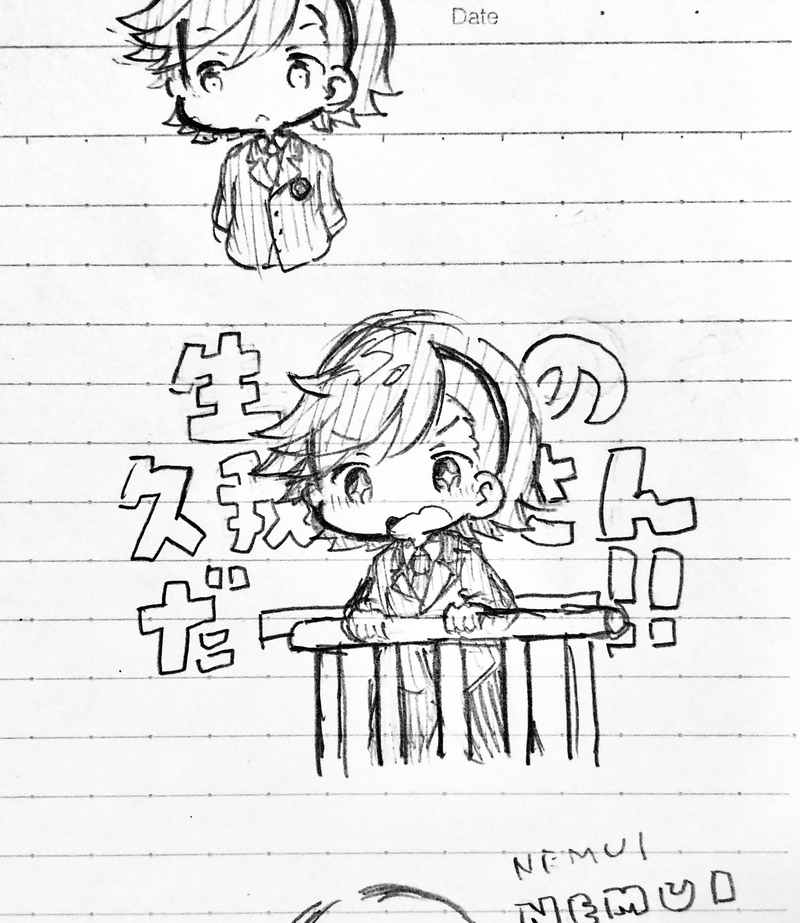 Date
生の
久我さん
だ!!
NEMUI
NEMUI